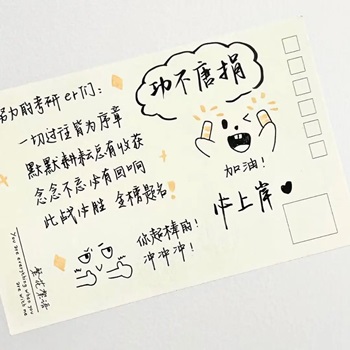 努力的考研er们:
一切过往皆为序章
默默耕耘总有收获
念念不忘必有回响
此战必胜 金榜题名!
功不唐捐
加油!
必上岸
你超棒的!
冲冲冲!
You are everything when you are with me